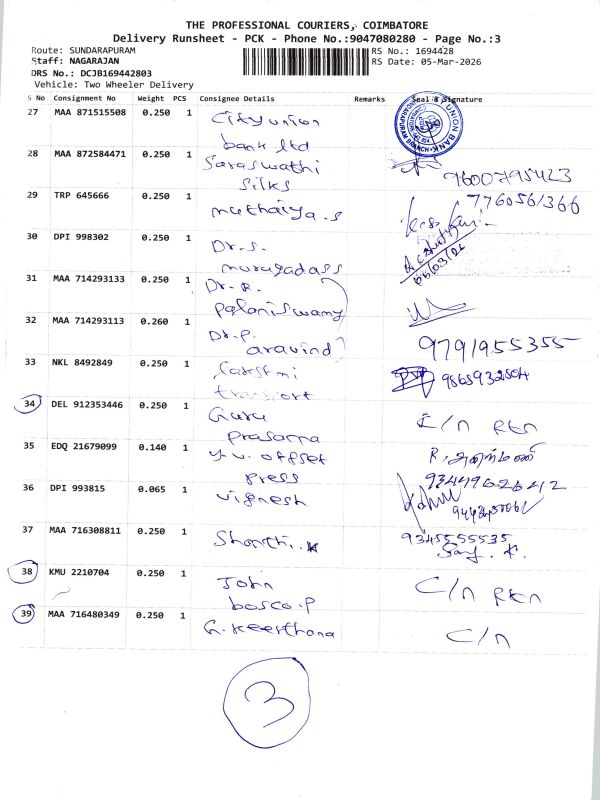 THE PROFESSIONAL COURIERS, COIMBATORE
Delivery Runsheet - PCK - Phone No.:9047080280 - Page No.:3
Route: SUNDARAPURAM RS No.: 1694428
Staff: NAGARAJAN RS Date: 05-Mar-2026
DRS No.: DCJB169442803
Vehicle: Two Wheeler Delivery
S No Consignment No Weight PCS Consignee Details Remarks Seal & Signature
27 MAA 871515508 0.250 1 City union
bank ltd
28 MAA 872584471 0.250 1 Saraswathi
Silks 9600795423
29 TRP 645666 0.250 1 muthaiya.s 7760561366
30 DPI 998302 0.250 1 Dr.S.
murugadass
31 MAA 714293133 0.250 1 Dr.R.
palaniswamy
32 MAA 714293113 0.260 1 Dr.P.
aravind 9791955355
33 NKL 8492849 0.250 1 Lakshmi
transport 9865932504
34 DEL 912353446 0.250 1 Guru C/n RTn
prasanna
35 EDQ 21679099 0.140 1 y.v. offset
press 9344962642
36 DPI 993815 0.065 1 vignesh
37 MAA 716308811 0.250 1 Shanthi..k 9345555535
38 KMU 2210704 0.250 1 John C/n RTn
bosco.p
39 MAA 716480349 0.250 1 G.keerthana C/n
3